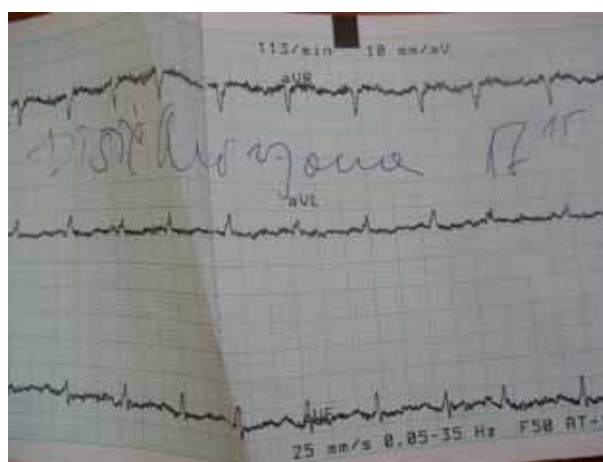 113/min 10 mm/mV
aVR
17 15
aVL
aVF
25 mm/s 0.05-35 Hz F50 AT-